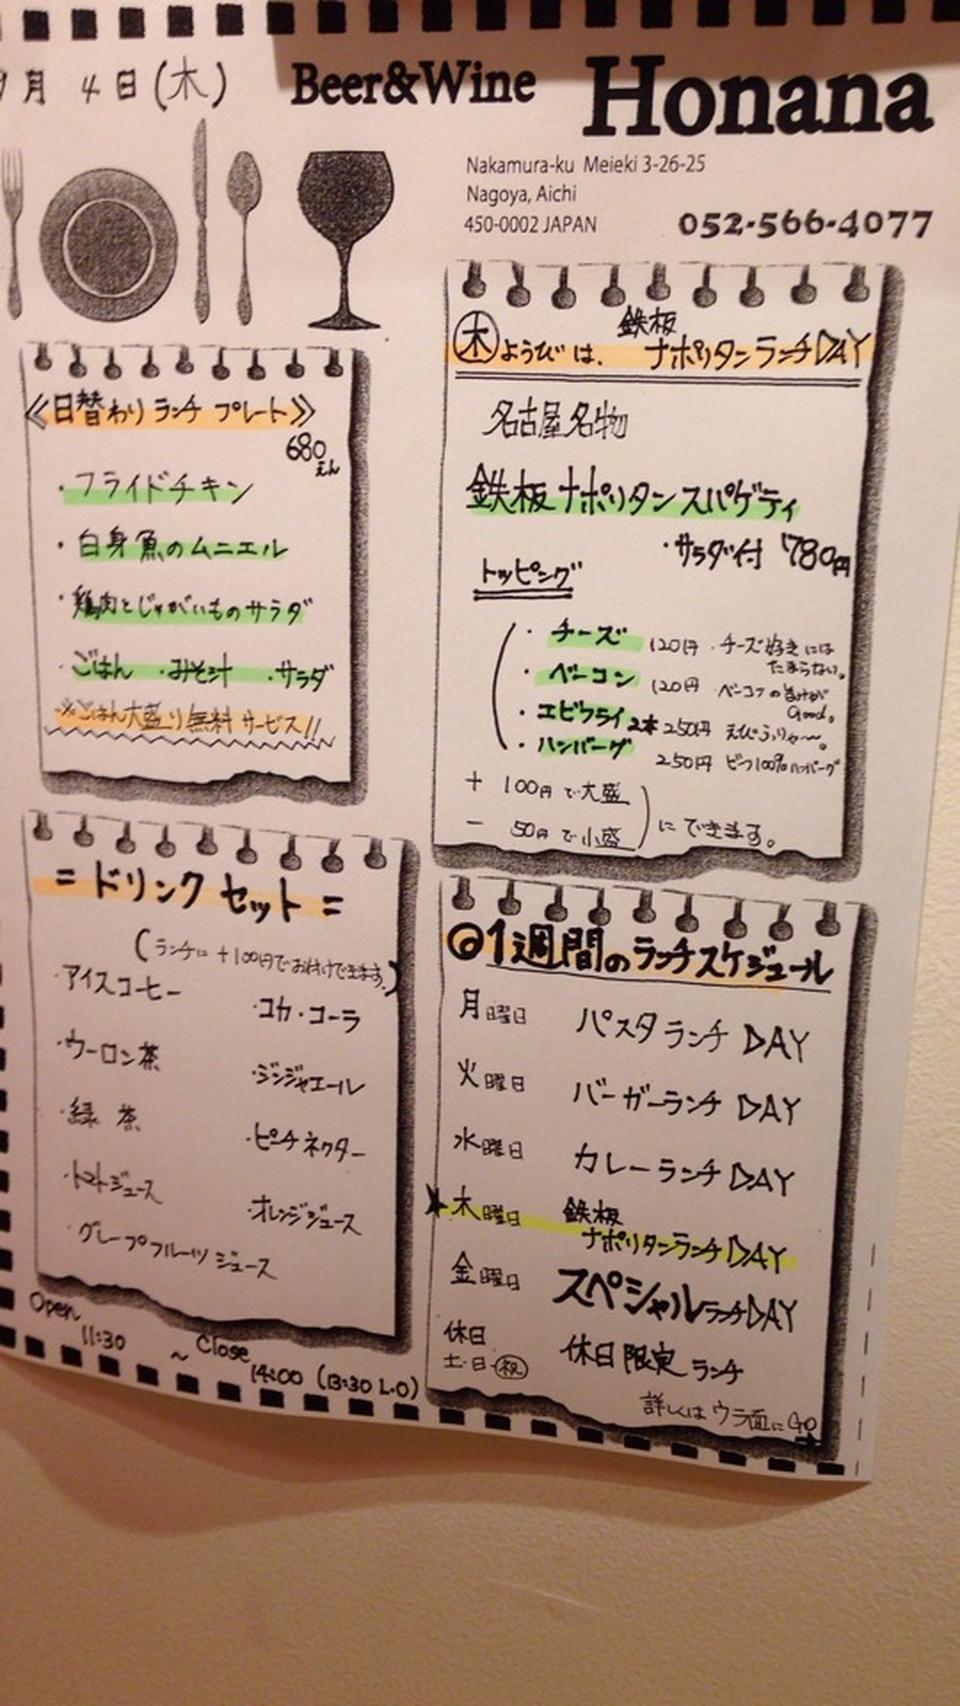 月 4日(木)
Beer&Wine Honana
Nakamura-ku Meieki 3-26-25
Nagoya, Aichi
450-0002 JAPAN
052-566-4077
《日替わり ランチ プレート》
680えん
・フライドチキン
・白身魚のムニエル
・鶏肉とじゃがいものサラダ
・ごはん ・みそ汁 ・サラダ
※ごはん大盛り無料サービス!!
木ようびは、鉄板ナポリタンランチDAY
名古屋名物
鉄板ナポリタンスパゲティ
・サラダ付 780円
トッピング
・チーズ 120円 ・チーズ好きには
たまらない。
・ベーコン 120円 ベーコンの旨みが
Good。
・エビフライ2本 250円 えびふりゃ〜。
・ハンバーグ 250円 ビーフ100%ハンバーグ
+ 100円で大盛
− 50円で小盛
にできます。
= ドリンク セット =
(ランチに +100円でお付けできます。)
・アイスコーヒー
・コカ・コーラ
・ウーロン茶
・ジンジャエール
・緑茶
・ピーチネクター
・トマトジュース
・オレンジジュース
・グレープフルーツジュース
Open
11:30 ~ Close
14:00 (13:30 L.O)
◎1週間のランチスケジュール
月曜日 パスタランチ DAY
火曜日 バーガーランチ DAY
水曜日 カレーランチ DAY
★木曜日 鉄板
ナポリタンランチDAY
金曜日 スペシャルランチDAY
休日
土・日・祝 休日限定 ランチ
詳しくはウラ面にGO